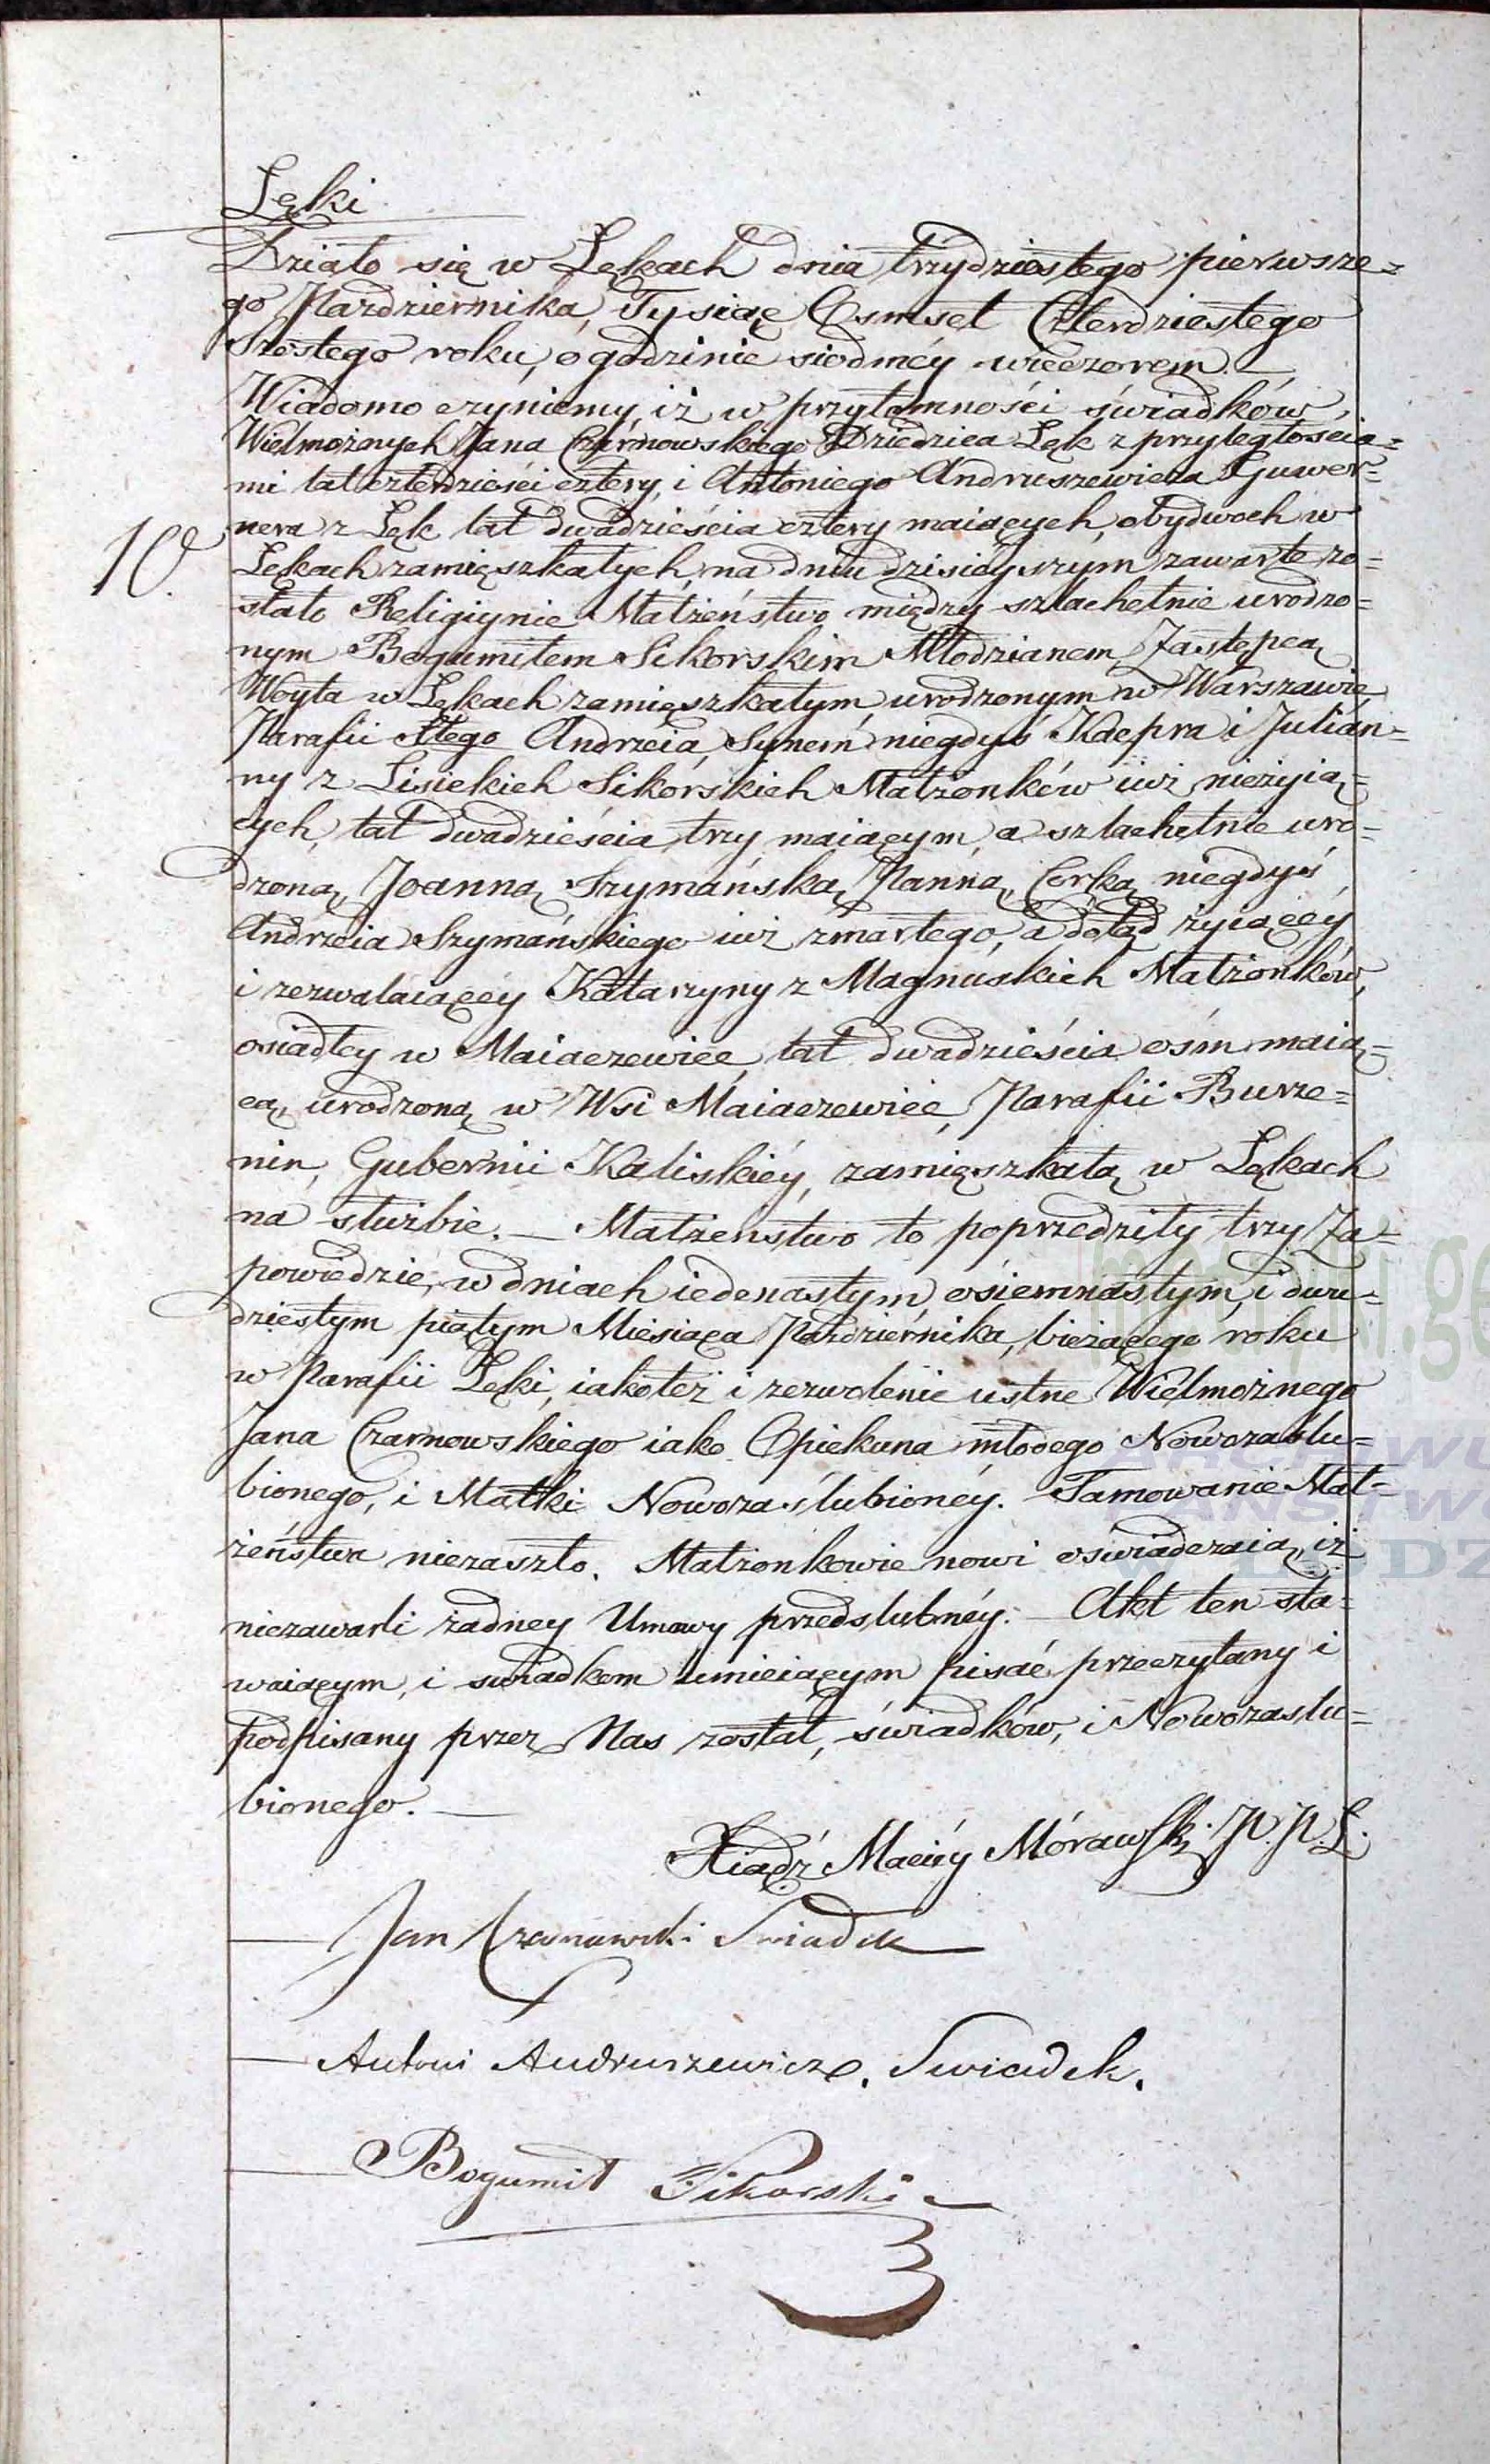 Łęki
Działo się w Łękach dnia trzydziestego pierwsze=
go Pazdziernika, Tysiąc Osmset Czterdziestego
Szostego roku, o godzinie siodméy wieczorem. —
Wiadomo czyniemy, iż w przytomności świadków,
Wielmożnych Jana Czarnowskiego Dziedzica Łęk z przyległościa=
mi lat czterdzieści cztery, i Antoniego Andruszewicza Guwer=
nera z Łęk lat dwadzieścia cztery maiących, obydwoch w
10. Łękach zamięszkałych, na dniu dzisieyszym zawarte zo=
stało Religiynie Małżeństwo między szlachetnie urodzo=
nym Bogumiłem Sikorskim Młodzianem, Zastępcą
Woyta w Łękach zamięszkałym, urodzonym w Warszawie
Parafii Stego Andrzeia, Synem niegdyś Kacpra i Julian=
ny z Lisickich Sikorskich Małżonków iuż nieżyią=
cych, lat dwadzieścia trzy maiącym, a szlachetnie uro=
dzoną, Joanną Szymańską, Panną, Corką niegdyś
Andrzeia Szymańskiego iuż zmarłego, a dotąd żyiącéy
i zezwalaiącéy Katarzyny z Magnuskich Małżonków,
osiadłey w Maiaczewice, lat dwadzieścia ośm maią=
cą, urodzoną w Wsi Maiaczewice, Parafii Burze=
nin, Gubernii Kaliskiéy, zamięszkałą w Łękach
na służbie. — Małżeństwo to poprzedziły trzy Za=
powiedzie, w dniach iedenastym, osiemnastym, i dwu=
dziestym piątym Miesiąca Pazdziernika, bieżącego roku
w Parafii Łęki, iakoteż i zezwolenie ustne Wielmożnego
Jana Czarnowskiego iako Opiekuna młodego Nowozaślu=
bionego, i Matki Nowozaślubionéy. Tamowanie Mał=
żeństwa niezaszło. Małżonkowie nowi oświadczaią, iż
niezawarli żadney Umowy przedslubnéy. — Akt ten sta=
waiącym, i swiadkom umieiącym pisać przeczytany i
podpisany przez Nas został, świadków, i Nowozaslu=
bionego. —
Xiądz Maciéy Mórawski P. P. Ł.
— Jan Czarnowski Swiadek
— Antoni Andruszewicz. Swiadek.
— Bogumił Sikorski —